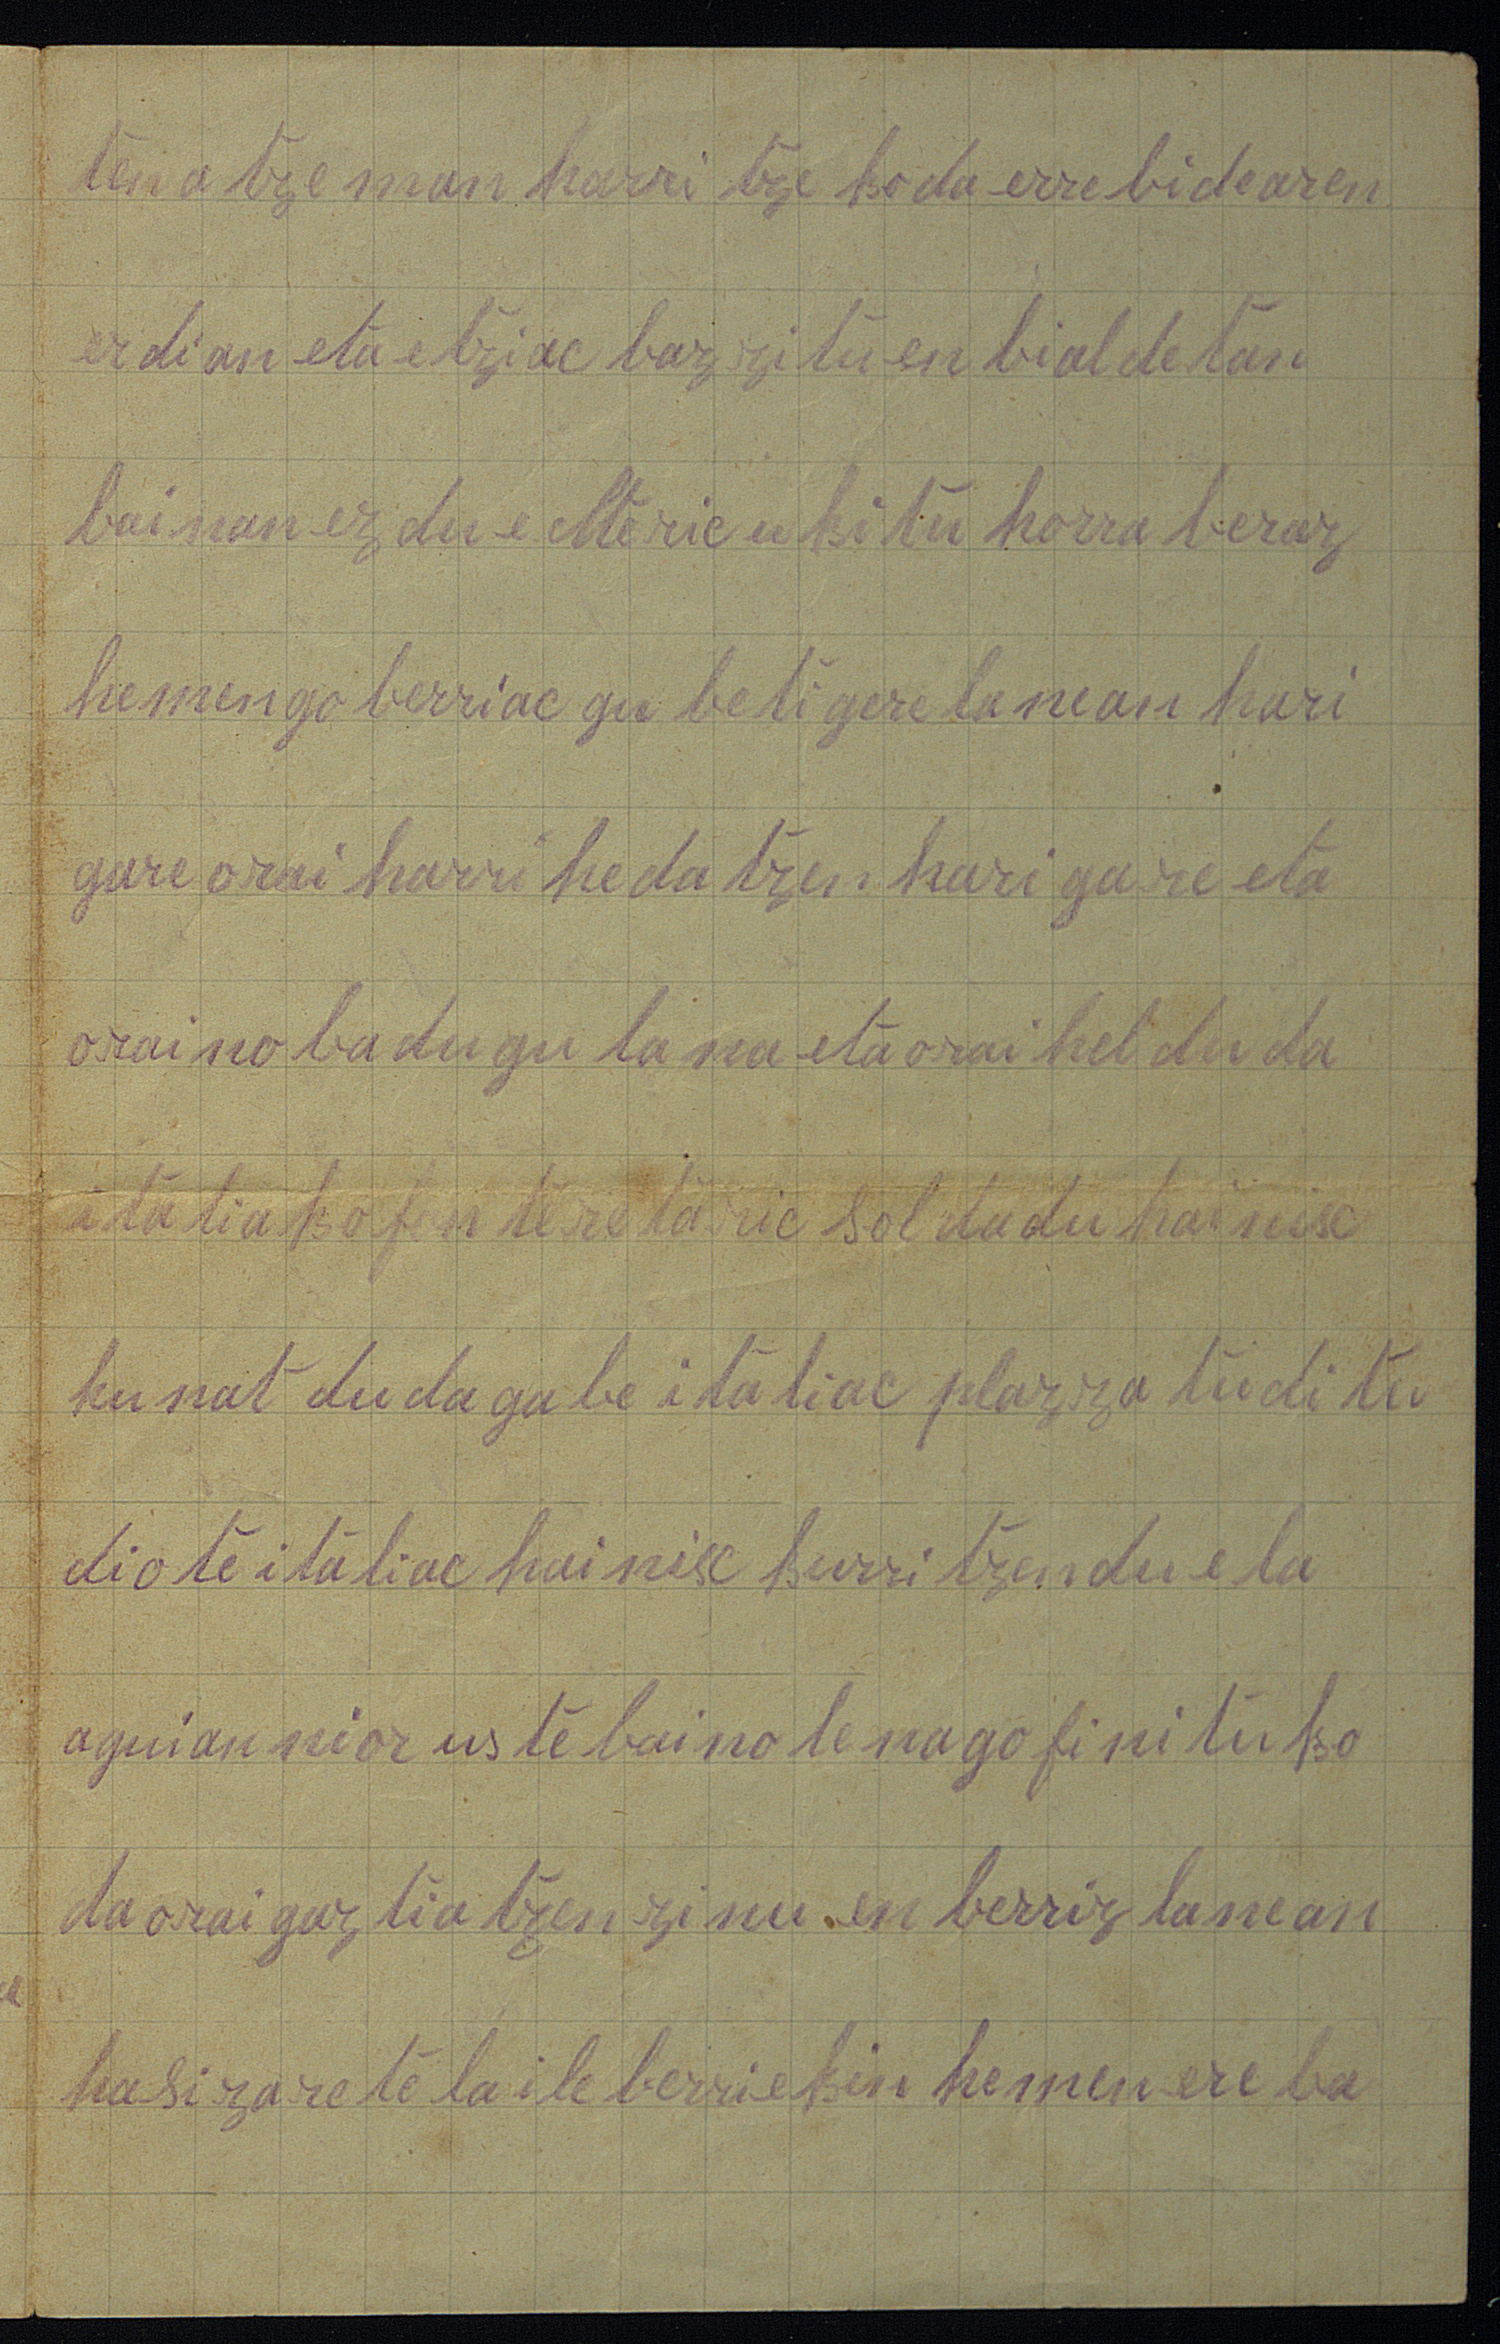 ten atzeman harritzekoda errebidearen
erdian eta etziac bazzituen bialdetan
bainan ez du elteric ukitu horra beraz
hemengo berriac gu beti gere lanean hari
gare orai harri hedatzen hari gare eta
oraino badugu lana eta orai heldu da
italiako fronteretaric soldadu hainisc
hunat dudagabe italiac plazzatu ditu
diote italiac hainisc kurritzen duela
aguian nior uste baino lenago finituko
da orai gaztiatzen zinuen berriz lanean
hasi zaretela ile berriekin hemen ere ba